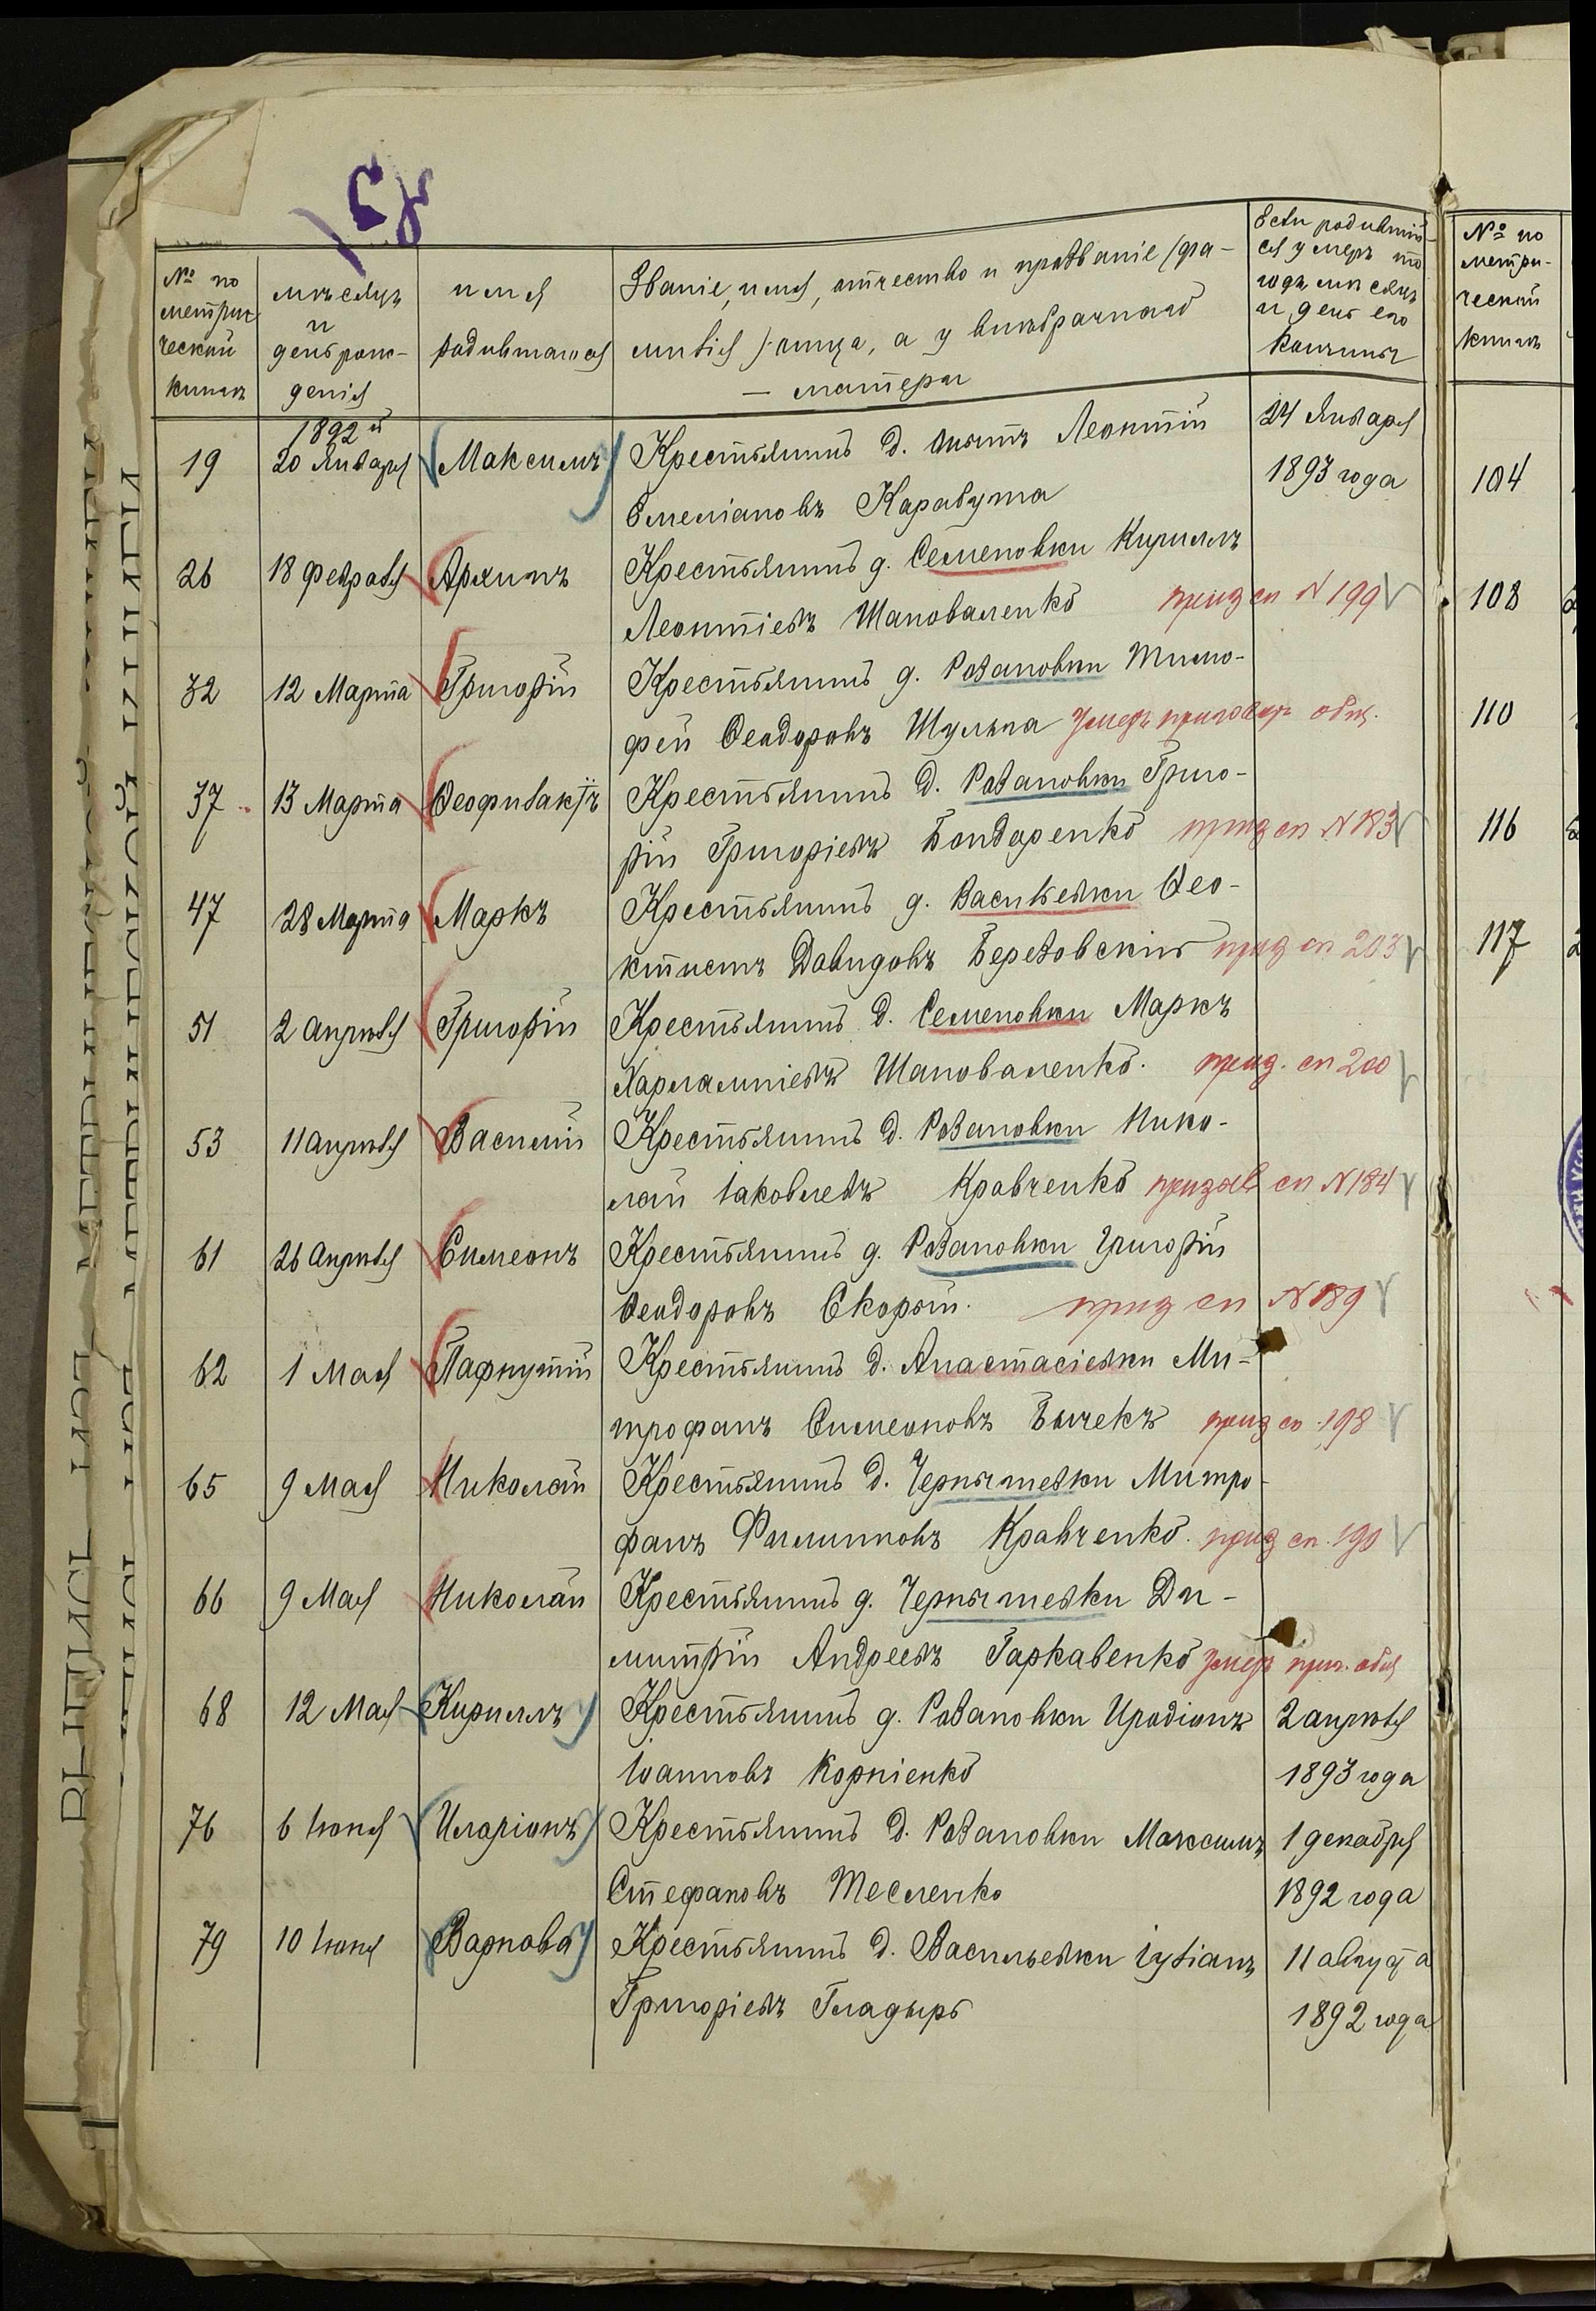 № по метри-ческой книгѣ
мѣсяцъ и день рож-денія
имя родившагося
Званіе, имя, отчество и прозваніе (фа-
милія) отца, а у внѣбрачнаго
— матери
Если родившій-ся умеръ то годъ мѣсяцъ и день его кончины
19 1892 г. 20 Января Максимъ Крестьянинъ д. Леонтій 24 Января
Емеліановъ Карабута 1893 года
26 18 Февраля Архипъ Крестьянинъ д. Семеновки Кириллъ
Леонтіевъ Шаповаленко приз сп N 199
32 12 Марта Григорій Крестьянинъ д. Розановки Тимо-
фей Ѳеодоровъ Шульга Умеръ приговоръ общ.
37 13 Марта Ѳеофилактъ Крестьянинъ д. Розановки Григо-
рій Григоріевъ Бондаренко приз сп N 183
47 28 Марта Маркъ Крестьянинъ д. Васильевки Ѳео-
ктистъ Давидовъ Березовскій приз сп 203
51 2 Апрѣля Григорій Крестьянинъ д. Семеновки Маркъ
Харлампіевъ Шаповаленко. приз. сп 200
53 11 Апрѣля Василій Крестьянинъ д. Розановки Нико-
лай Іаковлевъ Кравченко призыв сп N 184
61 26 Апрѣля Симеонъ Крестьянинъ д. Розановки Григорій
Ѳеодоровъ Скорый. приз сп N 189
62 1 Мая Пафнутій Крестьянинъ д. Анастасіевки Ми-
трофанъ Симеоновъ Бычекъ приз сп 198
65 9 Мая Николай Крестьянинъ д. Чернышевки Митро-
фанъ Филипповъ Кравченко. приз сп. 190
66 9 Мая Николай Крестьянинъ д. Чернышевки Ди-
митрій Андреевъ Гаркавенко Умеръ приг. общ
68 12 Мая Кириллъ Крестьянинъ д. Розановки Иродіонъ 2 апрѣля
Іоанновъ Корніенко 1893 года
76 6 Іюня Иларіонъ Крестьянинъ д. Розановки Максимъ 1 декабря
Стефановъ Тесленко 1892 года
79 10 Іюня Варнава Крестьянинъ д. Васильевки Іуліанъ 11 августа
Григоріевъ Гладырь 1892 года
№ по метри-ческой книгѣ
104
108
110
116
117
ВЫПИСЬ ИЗЪ